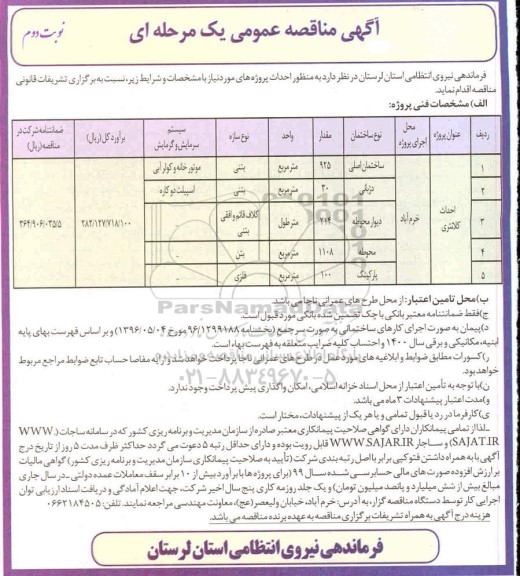 آگهی مناقصه عمومی یک مرحله ای
نوبت دوم
فرماندهی نیروی انتظامی استان لرستان در نظر دارد به منظور احداث پروژه های مورد نیاز با مشخصات و شرایط زیر، نسبت به برگزاری تشریفات قانونی
مناقصه اقدام نماید.
الف) مشخصات فنی پروژه:
ردیف عنوان پروژه محل اجرای پروژه نوع ساختمان مقدار واحد نوع سازه سیستم سرمایش و گرمایش برآورد کل (ریال) ضمانتنامه شرکت در مناقصه (ریال)
۱ احداث کلانتری خرم آباد ساختمان اصلی ۹۲۵ متر مربع بتنی موتور خانه و کولر آبی ۲۸۲/۱۲۷/۷۱۸/۱۰۰
۲ دژبانی ۳۰ متر مربع بتنی اسپیلت دو کاره
۳ دیوار محوطه متر طول کلاف قائم و افقی بتنی -
۴ محوطه ۱۱۰۸ متر مربع بتن -
۵ پارکینگ ۱۰۰ متر مربع فلزی -
ParsNamadData
۰۲۱-۸۸۳۴۹۶۷۰-۵
ب) محل تامین اعتبار: از محل طرح های عمرانی ناجا می باشد.
ج) فقط ضمانتنامه معتبر بانکی یا چک تضمین شده بانکی مورد قبول است.
د) پیمان به صورت اجرای کارهای ساختمانی به صورت سرجمع (بخشنامه ۹۶/۱۲۹۹۱۸۸ مورخ ۱۳۹۶/۰۵/۰۴) و بر اساس فهرست بهای پایه
ابنیه، مکانیکی و برقی سال ۱۴۰۰ و احتساب کلیه ضرایب متعلقه به فهرست بهاء است.
ر) کسورات مطابق ضوابط و ابلاغیه های مورد عمل در طرح های عمرانی ناجا پرداخت خواهد شد و ارایه مفاصا حساب تابع ضوابط مراجع مربوط
خواهد بود.
ن) با توجه به تأمین اعتبار از محل اسناد خزانه اسلامی، امکان واگذاری پیش پرداخت وجود ندارد.
و) مدت اعتبار پیشنهادات ۳ ماه می باشد.
ی) کارفرما در رد یا قبول تمامی و یا هر یک از پیشنهادات، مختار است.
ـ لذا از تمامی پیمانکاران دارای گواهی صلاحیت پیمانکاری معتبر صادره از سازمان مدیریت و برنامه ریزی کشور که در سامانه ساجات (WWW.
SAJAT.IR) و ساجار WWW.SAJAR.IR قابل رویت بوده و دارای حداقل رتبه ۵ دعوت می گردد حداکثر ظرف مدت ۵ روز از تاریخ درج
آگهی با به همراه داشتن فتوکپی برابر با اصل رتبه بندی شرکت (تأیید به صلاحیت پیمانکاری سازمان مدیریت و برنامه ریزی کشور) گواهی مالیات
بر ارزش افزوده صورت های مالی حسابرسی شده سال ۹۹ (برای پروژه ها با برآورد بیش از ۱۰ برابر سقف معاملات عمده دولتی ـ در سال جاری
مبالغ بیش از شش میلیارد و پانصد میلیون تومان) و یک جلد روزمه کاری پنج سال اخیر شرکت، جهت اعلام آمادگی و دریافت اسناد ارزیابی توان
اجرایی کار توسط دستگاه مناقصه گزار، به آدرس: خرم آباد، خیابان ولیعصر (عج)، معاونت مهندسی مراجعه نمایند. تلفن: ۰۶۶۲۱۸۴۵۰۵
هزینه درج آگهی به همراه تشریفات برگزاری مناقصه به عهده برنده مناقصه می باشد.
فرماندهی نیروی انتظامی استان لرستان